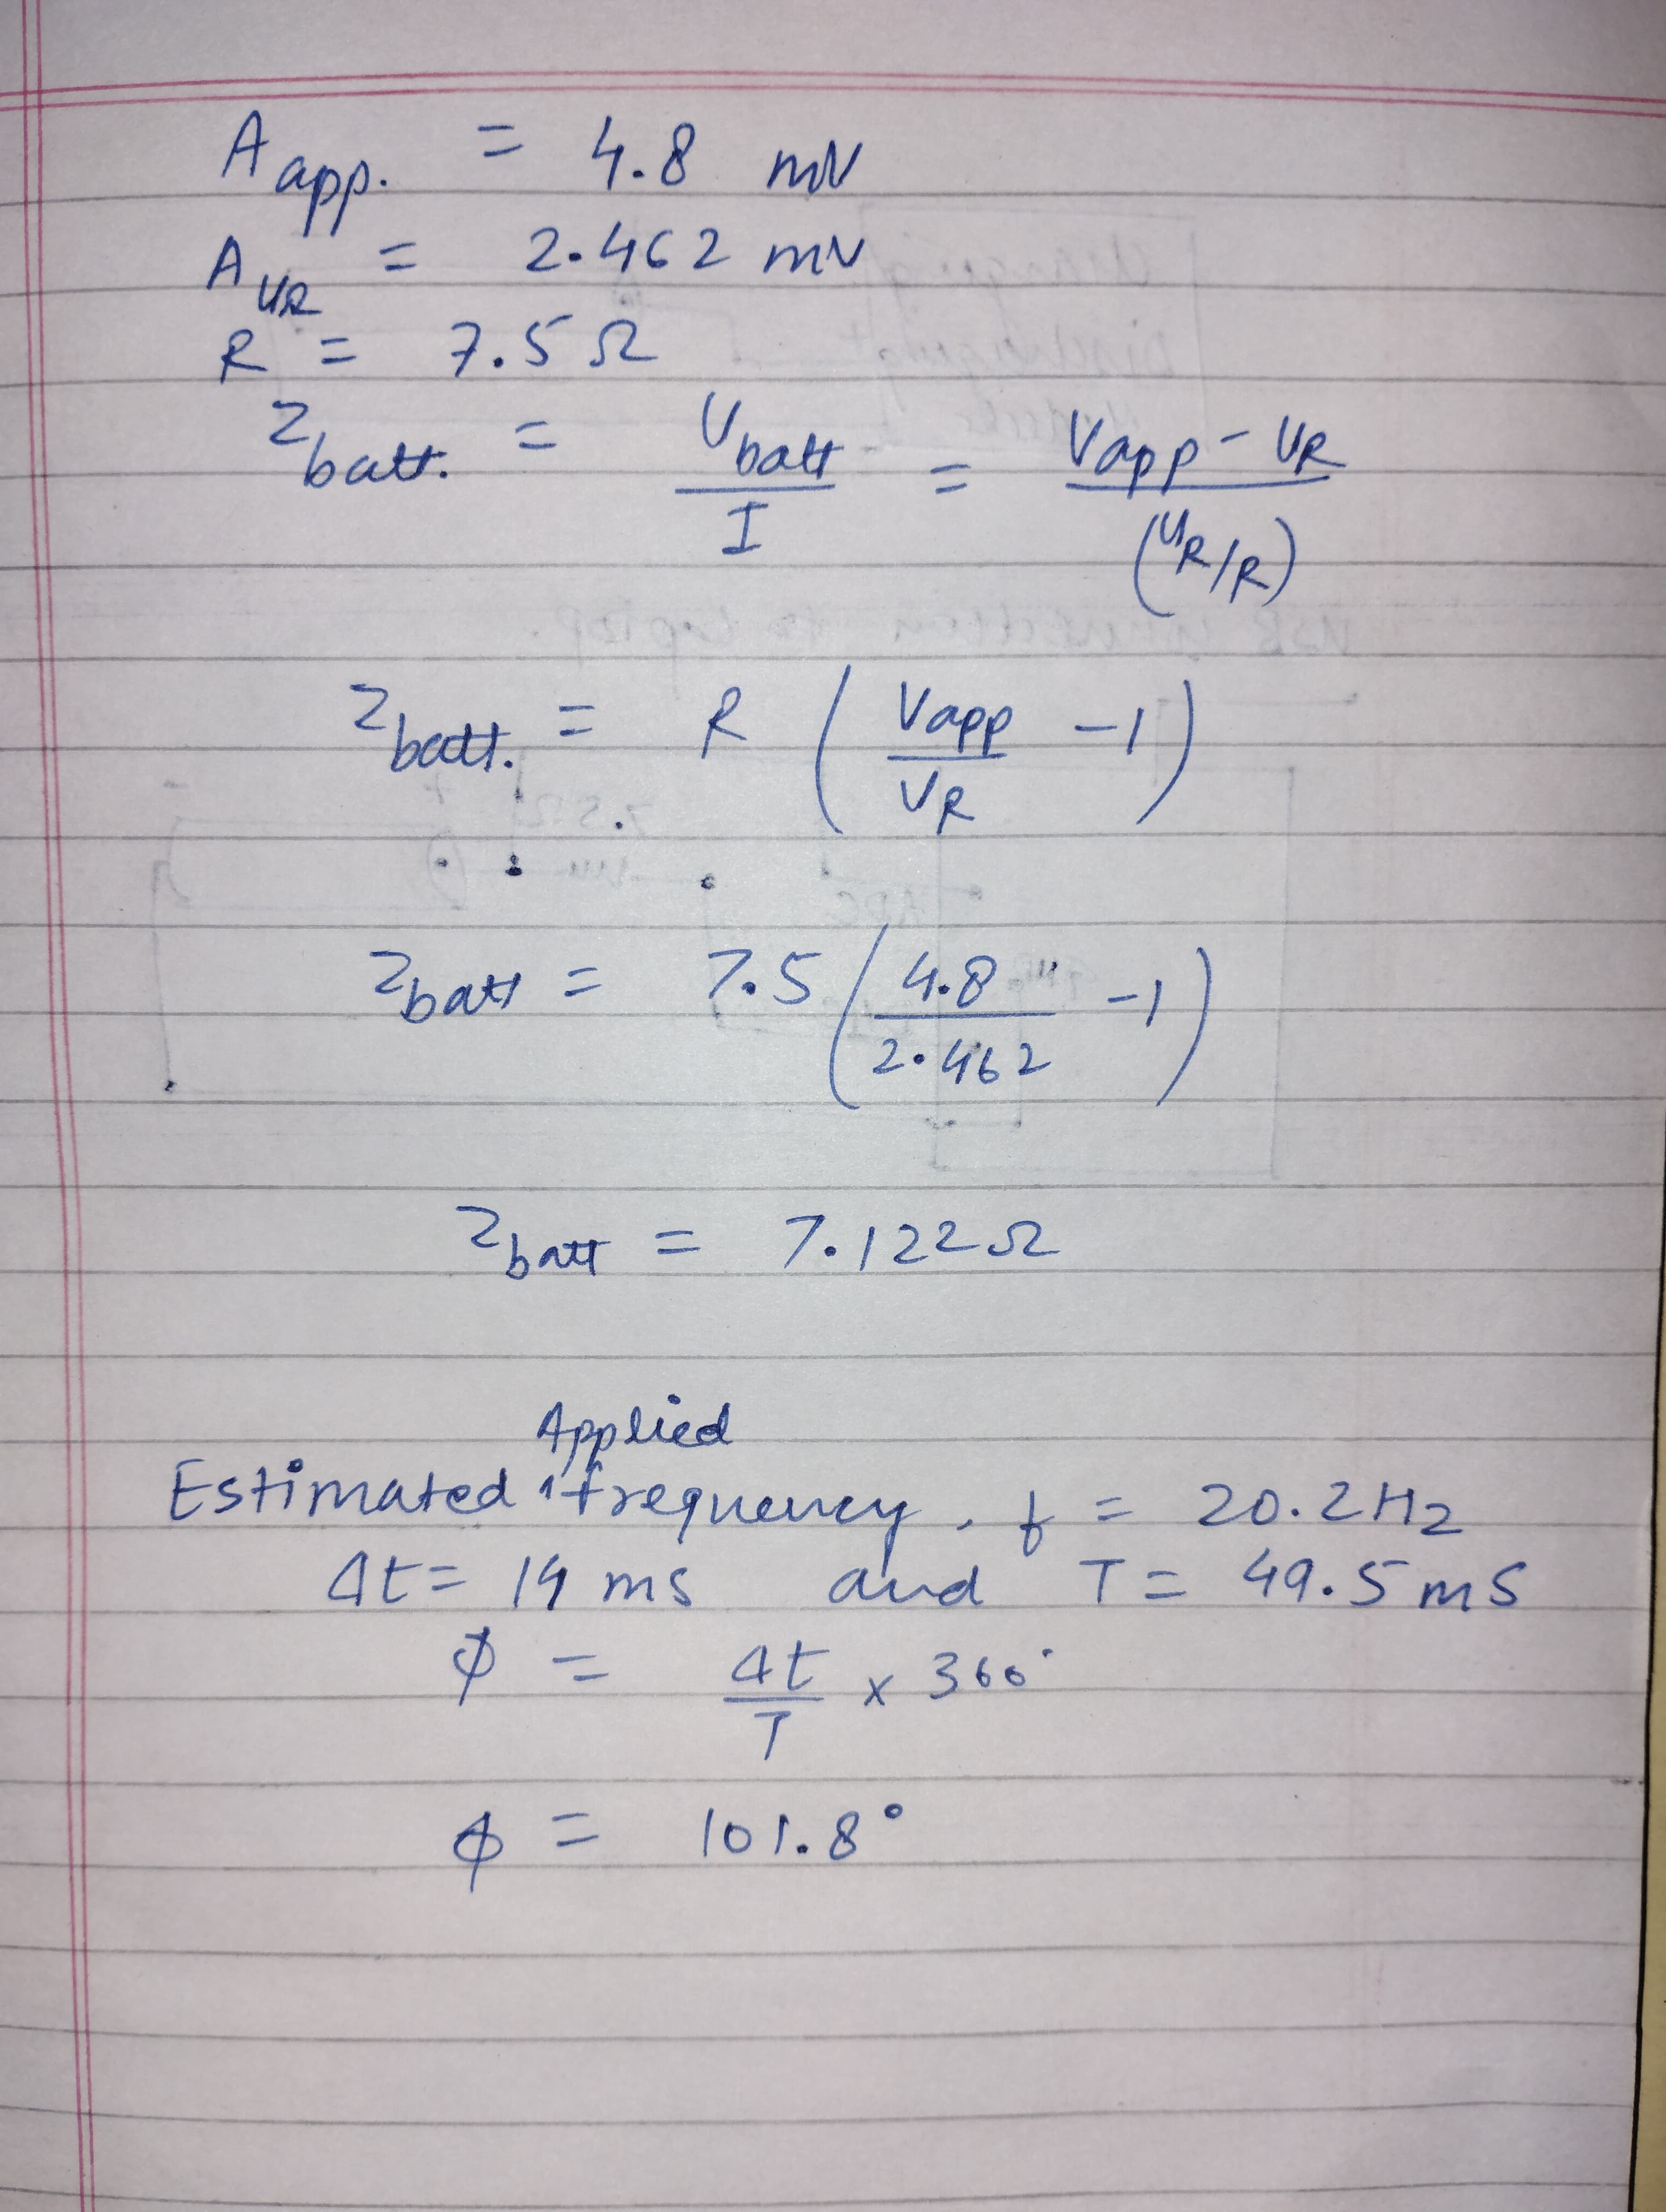 A app. = 4.8 mV
A VR = 2.462 mV
R = 7.5 Ω
Z batt. = V batt / I = Vapp - VR / (VR/R)
Z batt. = R ( Vapp / VR - 1 )
Z batt = 7.5 ( 4.8 / 2.462 - 1 )
Z batt = 7.122 Ω
Applied
Estimated ^ frequency, f = 20.2 Hz
Δt = 14 ms and T = 49.5 ms
φ = Δt / T × 360°
φ = 101.8°